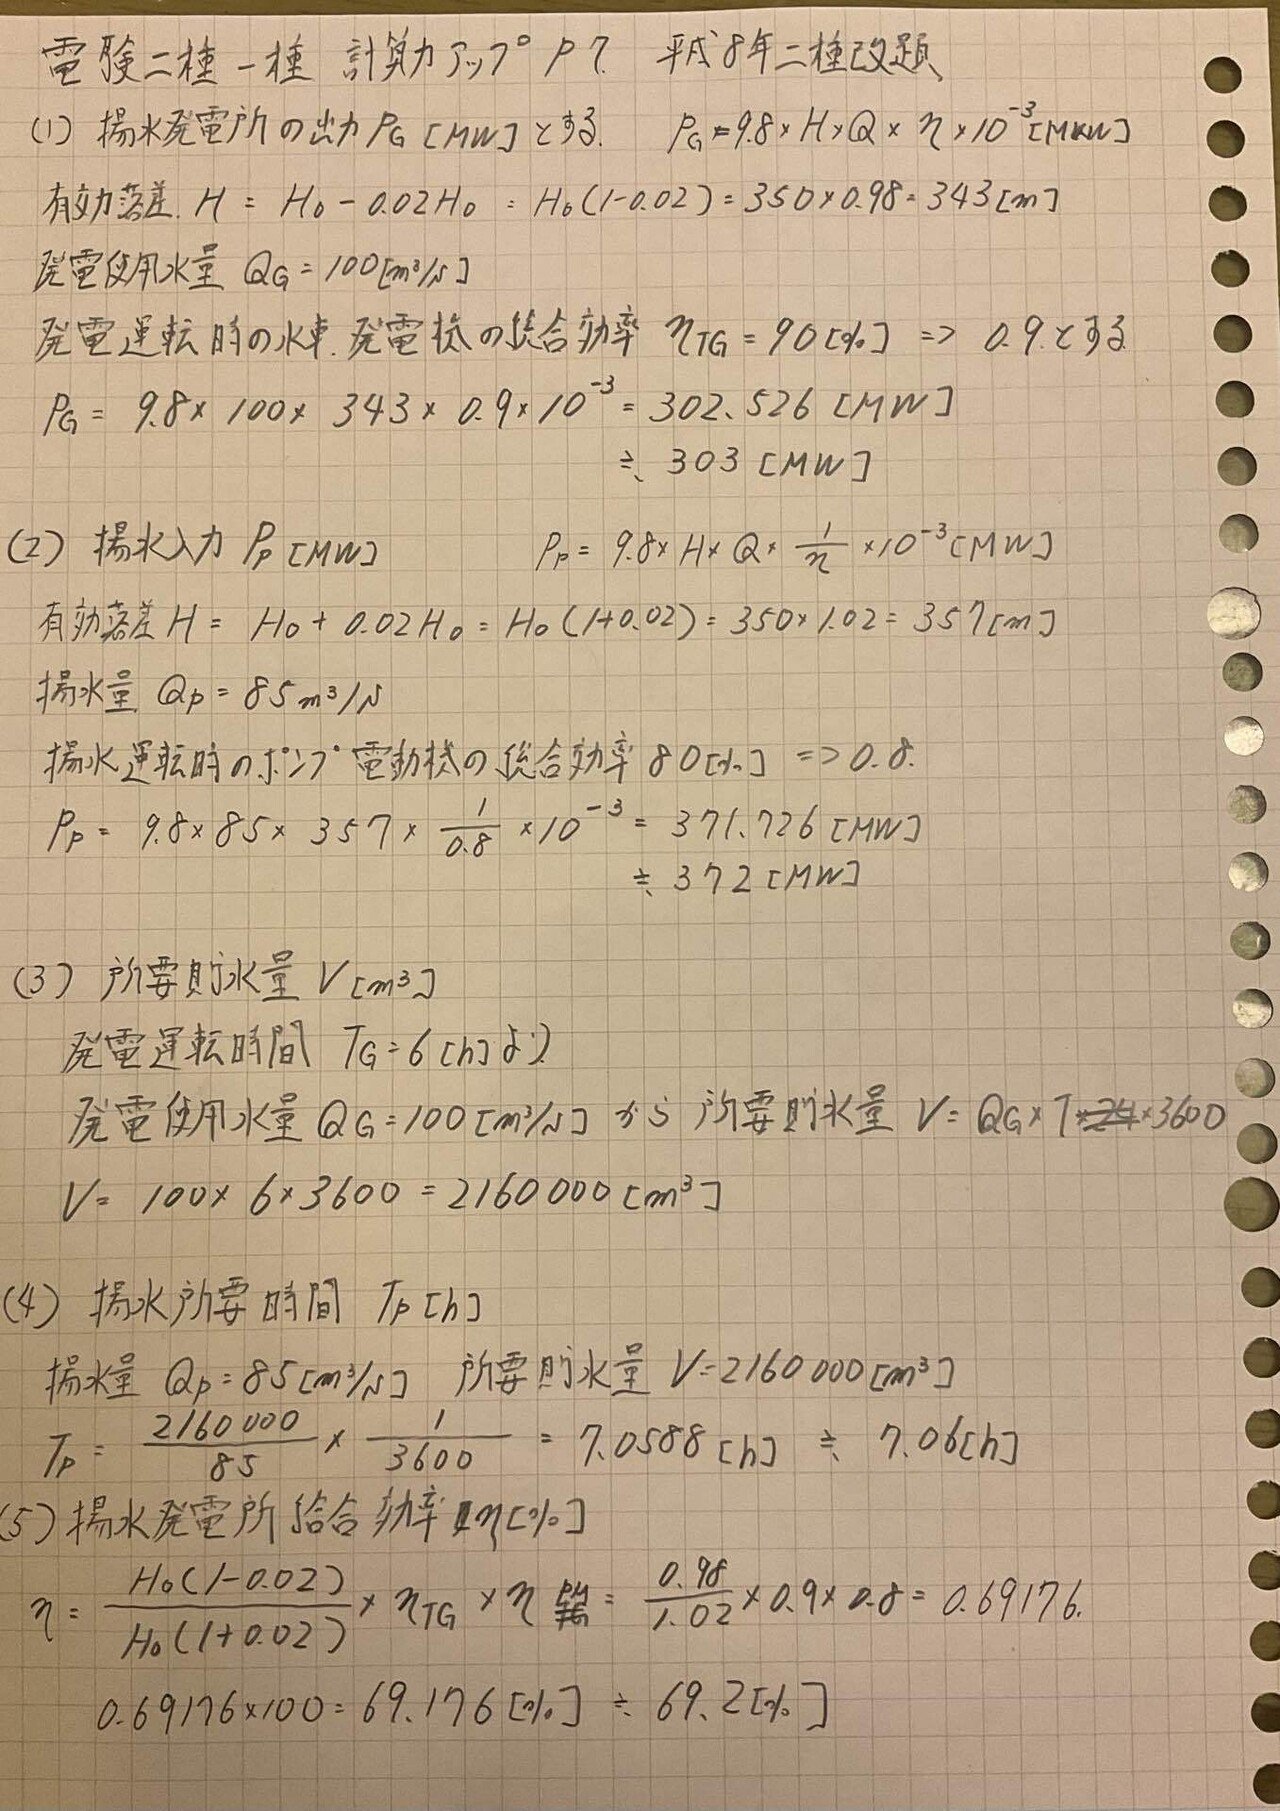 電験二種一種 計算力アップ P7. 平成8年二種改題
(1) 揚水発電所の出力 PG [MW] とする. PG = 9.8 × H × Q × η × 10⁻³ [MW]
有効落差. H = H₀ - 0.02H₀ = H₀(1-0.02) = 350×0.98 = 343 [m]
発電使用水量 QG = 100 [m³/s]
発電運転時の水車.発電機の総合効率 ηTG = 90 [%] => 0.9.とする
PG = 9.8 × 100 × 343 × 0.9 × 10⁻³ = 302.526 [MW]
≒ 303 [MW]
(2) 揚水入力 Pp [MW] Pp = 9.8 × H × Q × 1/η × 10⁻³ [MW]
有効落差 H = H₀ + 0.02H₀ = H₀(1+0.02) = 350×1.02 = 357 [m]
揚水量 Qp = 85 m³/s
揚水運転時のポンプ電動機の総合効率 80 [%] => 0.8.
Pp = 9.8 × 85 × 357 × 1/0.8 × 10⁻³ = 371.726 [MW]
≒ 372 [MW]
(3) 所要貯水量 V [m³]
発電運転時間 TG = 6 [h] より
発電使用水量 QG = 100 [m³/s] から 所要貯水量 V = QG × T × 3600
V = 100 × 6 × 3600 = 2160000 [m³]
(4) 揚水所要時間 Tp [h]
揚水量 Qp = 85 [m³/s] 所要貯水量 V = 2160000 [m³]
Tp = 2160000/85 × 1/3600 = 7.0588 [h] ≒ 7.06 [h]
(5) 揚水発電所総合効率 η [%]
η = H₀(1-0.02)/H₀(1+0.02) × ηTG × η = 0.98/1.02 × 0.9 × 0.8 = 0.69176.
0.69176×100 = 69.176 [%] ≒ 69.2 [%]